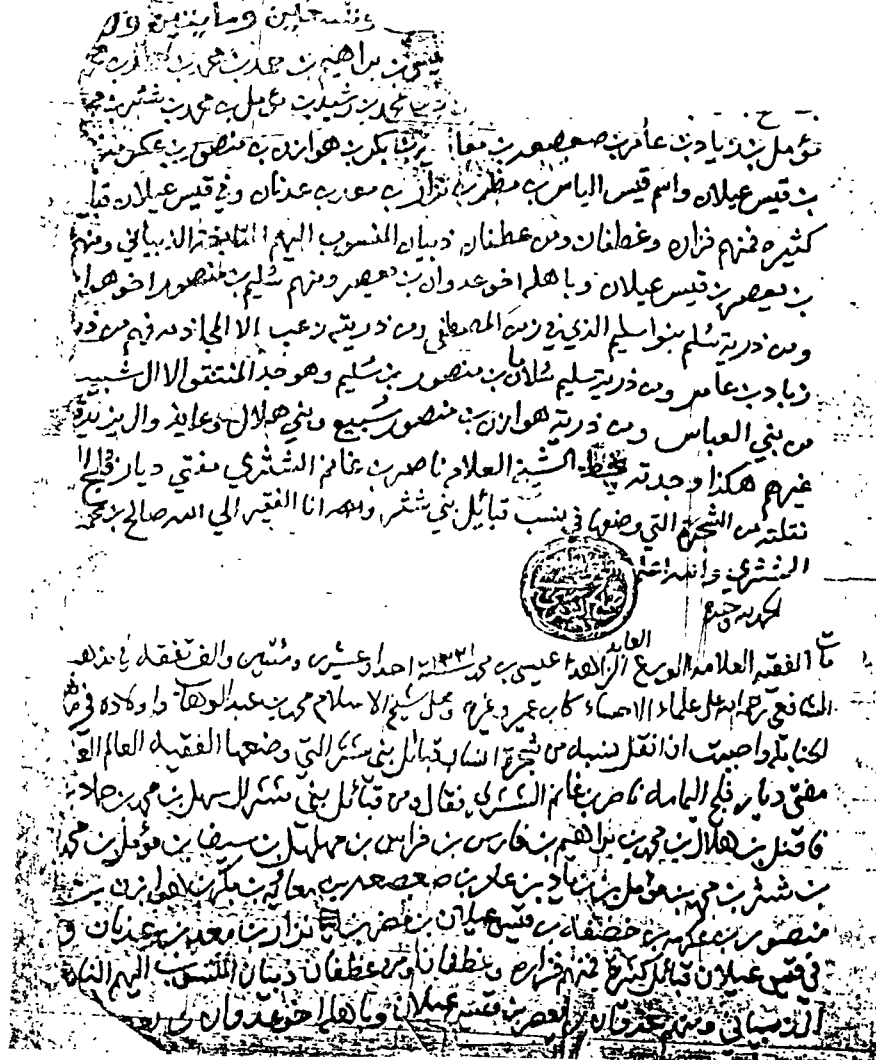 وتسعين ومايتين وال
عيسى بن براهيم بن محمد بن محمد بن
بن محمد بن رشيد بن مؤمل بن محمد بن شثر بن
مؤمل بن زياد بن عامر بن صعصعه بن معا بن بكر بن هوازن بن منصور بن عكرمه
بن قيس عيلان واسم قيس الياس بن مظر بن نزار بن معد بن عدنان وفي قيس عيلان قبا
كثيره فمنهم فزاره وغطفان ومن غطفان ذبيان المنسوب اليهم النابغة الذبياني ومنهم
بن يعصر بن قيس عيلان وباهله اخو عدوان بن يعصر ومنهم سليم بن منصور اخو هوا
ومن ذرية سليم بنوا سليم الذي في زمن المصطفى ومن ذريته زعب الا
زياد بن عامر ومن ذرية سليم بن منصور بن سليم وهو جد المنتفق الا ال شبيب
من بني العباس ومن ذرية هوازن بن منصور سبيع وبني هلال وعايذ وال يزيد
غيرهم هكذا وجدته بخط الشيخ العلامه ناصر بن غانم الشثري مفتي ديار فلج ا
نقلته من الشجرة التي وضعها في نسب قبائل بني شثر وانا الفقير الى الله صالح بن محمد
الشثري والله اعلم
الحمد لله وحده
العابد
مات الفقيه العلامه الورع الزاهد عيسى بن محمد سنة ١٢٢١ احدا وعشرين ومئتين والف تفقه في مذهب
الشافعي رحمه الله على علماء الاحساء كابن عمير وغيره وعلى شيخ الاسلام محمد بن عبد الوهاب واولاده في
الحنابله واحببت ان انقل نسبه من شجرة انساب قبائل بني شثر التي وضعها الفقيه العالم
مفتي ديار فلج اليمامه ناصر بن غانم الشثري فقال ومن قبائل بني شثر ال سهل بن محمد بن حماد
بن هلال بن محمد بن براهيم بن فارس بن فراس بن مهلهل بن سيف بن مؤمل بن محمد
بن شثر بن محمد بن مؤمل بن زياد بن عامر بن صعصعه بن معاويه بن بكر بن هوازن بن
منصور بن عكرمه بن خصفه بن قيس عيلان بن مضر بن نزار بن معد بن عدنان و
في قيس عيلان قبائل كثيرة فمنهم فزاره وغطفان ومن غطفان ذبيان المنسوب اليهم النابغة
الذبياني ومنهم عدوان بن يعصر بن قيس عيلان وباهله اخو عدوان بن يعصر